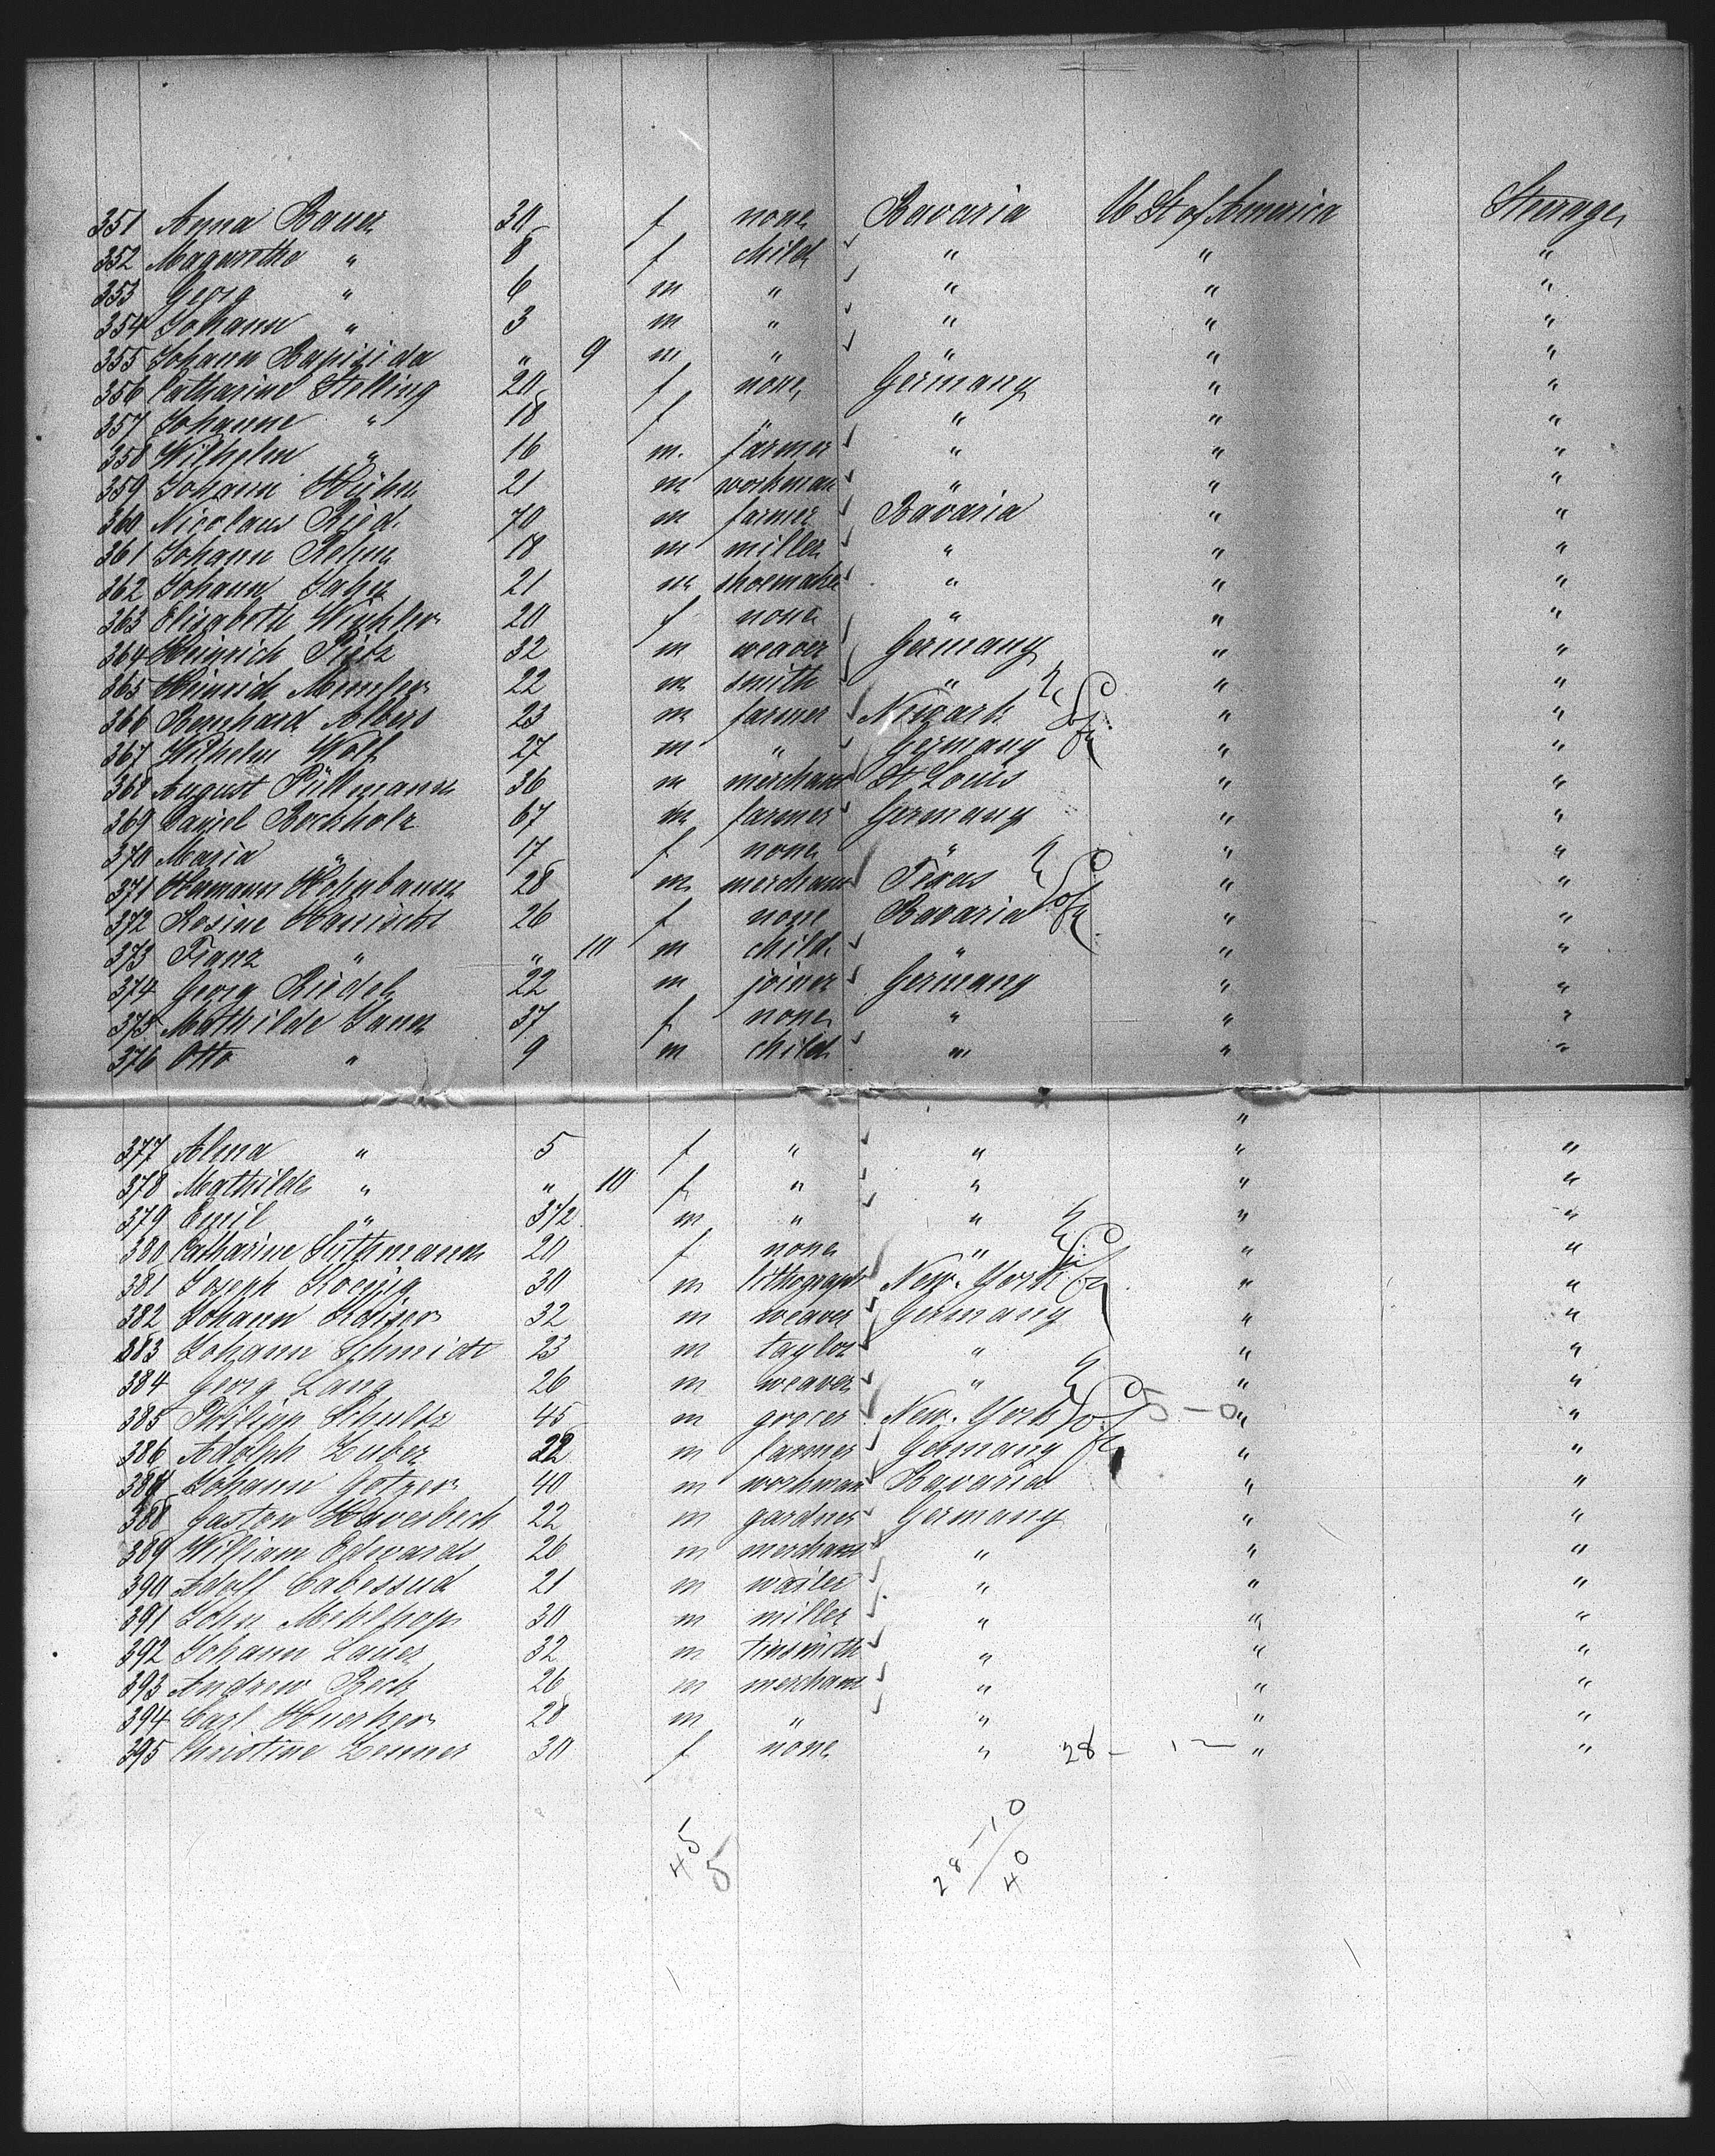 351 Anna Bauer 30 f none Bavaria U St of America Steerage
352 Magarethe " 8 f child " " "
353 Georg " 6 m " " " "
354 Johann " 3 m " " " "
355 Johann " 9 m " " " "
356 Catharine Stelling 20 f none Germany " "
357 Johanne " 18 f " " " "
358 Wilhelm " 16 m. farmer " " "
359 Johann Kühn 21 m workman " " "
360 Nicolaus Ried 70 m farmer Bavaria " "
361 Johann Rehm 18 m miller " " "
362 Johann Jahn 21 m shoemaker " " "
363 Elisabeth Winkler 20 f none " " "
364 Heinrich Pietz 32 m weaver Germany " "
365 Heinrich 22 m smith " " "
366 Bernhard Albers 23 m farmer Newark " "
367 Wilhelm Wolf 27 m " Germany " "
368 August Püllmann 36 m merchant St Louis " "
369 Daniel Bockholz 67 m farmer Germany " "
370 Maria " 17 f none " " "
371 Hermann Höhnbaum 28 m merchant Texas " "
372 Rosine 26 f none Bavaria " "
373 Franz " " 10 m child " " "
374 Georg Riedel 22 m joiner Germany " "
375 Mathilde Jann 37 f none " " "
376 Otto " 9 m child " " "
"
377 Alma " 5 f " " " "
378 Mathilde " " 10 f " " " "
379 Emil " 3 1/2 m " " " "
380 Catharine Suthmann 20 f none " " "
381 Joseph Koenig 30 m lithograph New-York " "
382 Johann Kaiser 32 m weaver Germany " "
383 Johann Schmidt 23 m taylor " " "
384 Georg Lang 26 m weaver " " "
385 Philipp Schultz 45 m grocer New-York 5 - 0 " "
386 Adolph Huber 22 m farmer Germany " "
387 Johann Götzer 40 m workman Bavaria " "
388 Gaston Haverbeck 22 m gardner Germany " "
389 William Edwards 26 m merchant " " "
390 Adolf Cabessud 21 m waiter " " "
391 John Mehlhop 30 m miller " " "
392 Johann Lauer 32 m tinsmith " " "
393 Andrew Beck 26 m merchant " " "
394 Carl Huerker 28 m " " " "
395 Christine Zenner 30 f none " 28 - 1 " "
45 28 - 10
5 40